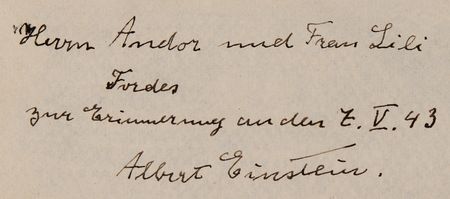 Herrn Andor und Frau Lili
Fordes
zur Erinnerung an den 7. V. 43
Albert Einstein.